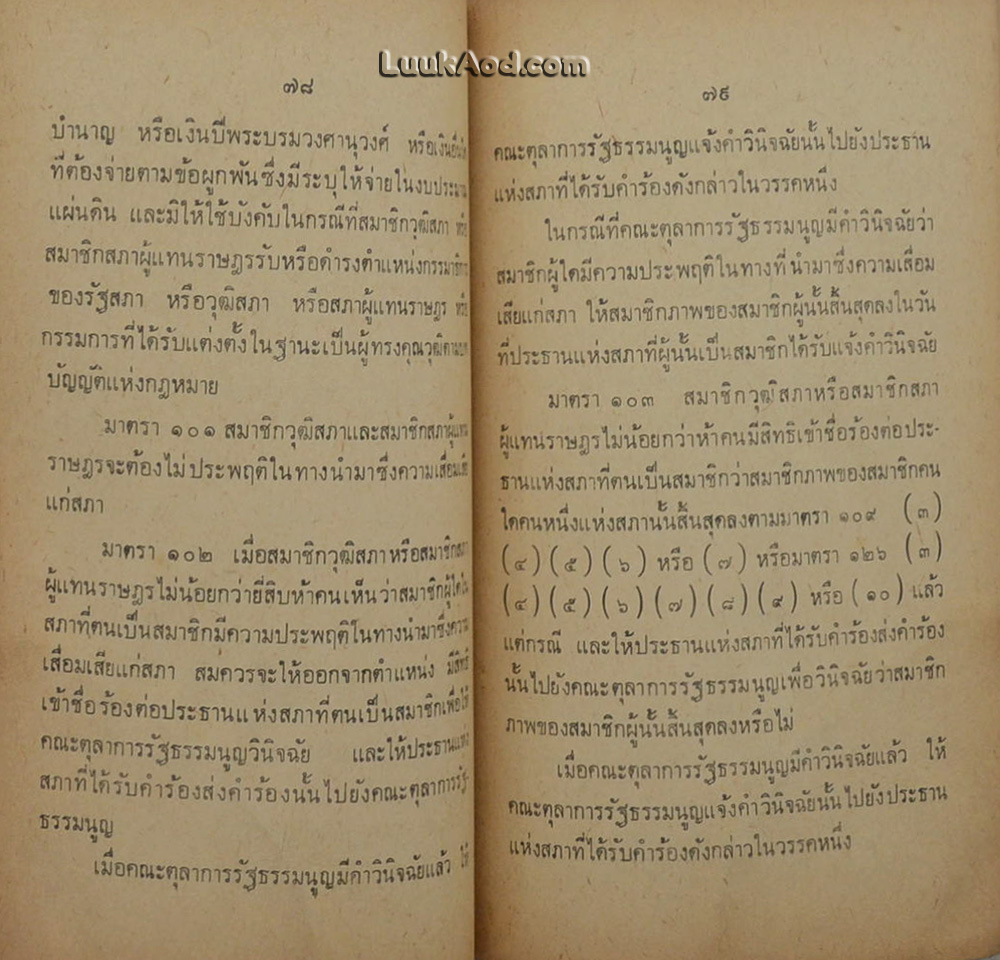 LuukAod.com
๗๘
บำนาญ หรือเงินปีพระบรมวงศานุวงศ์ หรือเงินอื่นใด
ที่ต้องจ่ายตามข้อผูกพันซึ่งมีระบุให้จ่ายในงบประมาณ
แผ่นดิน และมิให้ใช้บังคับในกรณีที่สมาชิกวุฒิสภา หรือ
สมาชิกสภาผู้แทนราษฎรรับหรือดำรงตำแหน่งกรรมาธิการ
ของรัฐสภา หรือวุฒิสภา หรือสภาผู้แทนราษฎร หรือ
กรรมการที่ได้รับแต่งตั้งในฐานะเป็นผู้ทรงคุณวุฒิตามบท
บัญญัติแห่งกฎหมาย
มาตรา ๑๐๑ สมาชิกวุฒิสภาและสมาชิกสภาผู้แทน
ราษฎรจะต้องไม่ประพฤติในทางนำมาซึ่งความเสื่อมเสีย
แก่สภา
มาตรา ๑๐๒ เมื่อสมาชิกวุฒิสภาหรือสมาชิกสภา
ผู้แทนราษฎรไม่น้อยกว่ายี่สิบห้าคนเห็นว่าสมาชิกผู้ใดใน
สภาที่ตนเป็นสมาชิกมีความประพฤติในทางนำมาซึ่งความ
เสื่อมเสียแก่สภา สมควรจะให้ออกจากตำแหน่ง มีสิทธิ
เข้าชื่อร้องต่อประธานแห่งสภาที่ตนเป็นสมาชิกเพื่อให้
คณะตุลาการรัฐธรรมนูญวินิจฉัย และให้ประธานแห่ง
สภาที่ได้รับคำร้องส่งคำร้องนั้นไปยังคณะตุลาการรัฐ-
ธรรมนูญ
เมื่อคณะตุลาการรัฐธรรมนูญมีคำวินิจฉัยแล้ว ให้
๗๙
คณะตุลาการรัฐธรรมนูญแจ้งคำวินิจฉัยนั้นไปยังประธาน
แห่งสภาที่ได้รับคำร้องดังกล่าวในวรรคหนึ่ง
ในกรณีที่คณะตุลาการรัฐธรรมนูญมีคำวินิจฉัยว่า
สมาชิกผู้ใดมีความประพฤติในทางที่นำมาซึ่งความเสื่อม
เสียแก่สภา ให้สมาชิกภาพของสมาชิกผู้นั้นสิ้นสุดลงในวัน
ที่ประธานแห่งสภาที่ผู้นั้นเป็นสมาชิกได้รับแจ้งคำวินิจฉัย
มาตรา ๑๐๓ สมาชิกวุฒิสภาหรือสมาชิกสภา
ผู้แทนราษฎรไม่น้อยกว่าห้าคนมีสิทธิเข้าชื่อร้องต่อประ-
ธานแห่งสภาที่ตนเป็นสมาชิกว่าสมาชิกภาพของสมาชิกคน
ใดคนหนึ่งแห่งสภานั้นสิ้นสุดลงตามมาตรา ๑๐๙ (๓)
(๔) (๕) (๖) หรือ (๗) หรือมาตรา ๑๒๖ (๓)
(๔) (๕) (๖) (๗) (๘) (๙) หรือ (๑๐) แล้ว
แต่กรณี และให้ประธานแห่งสภาที่ได้รับคำร้องส่งคำร้อง
นั้นไปยังคณะตุลาการรัฐธรรมนูญเพื่อวินิจฉัยว่าสมาชิก
ภาพของสมาชิกผู้นั้นสิ้นสุดลงหรือไม่
เมื่อคณะตุลาการรัฐธรรมนูญมีคำวินิจฉัยแล้ว ให้
คณะตุลาการรัฐธรรมนูญแจ้งคำวินิจฉัยนั้นไปยังประธาน
แห่งสภาที่ได้รับคำร้องดังกล่าวในวรรคหนึ่ง